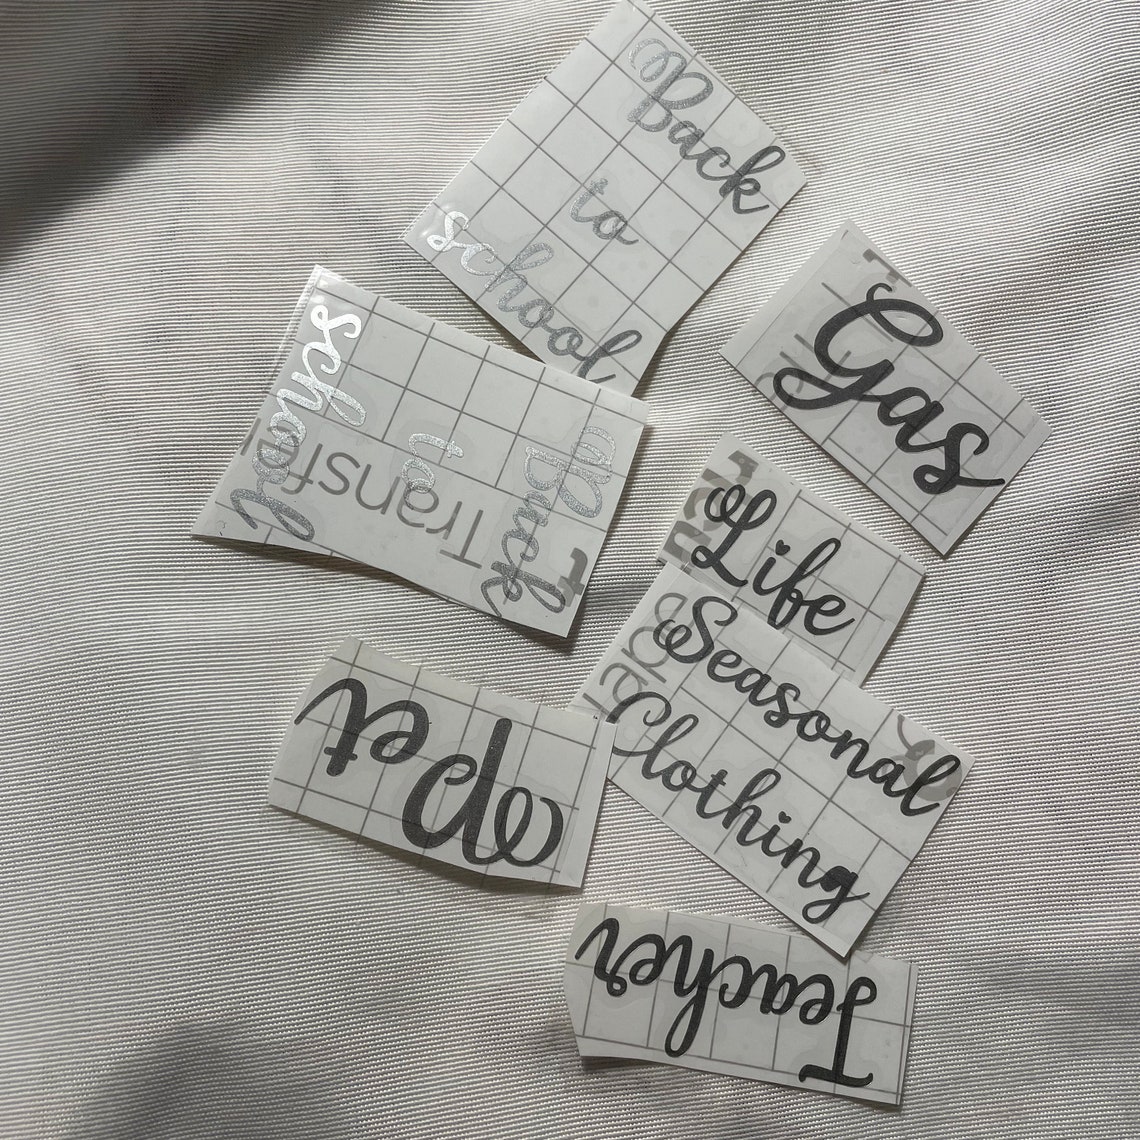 Back
to
school
Back
to
school
Transfer
Gas
Life
Seasonal
Clothing
Pet
Teacher